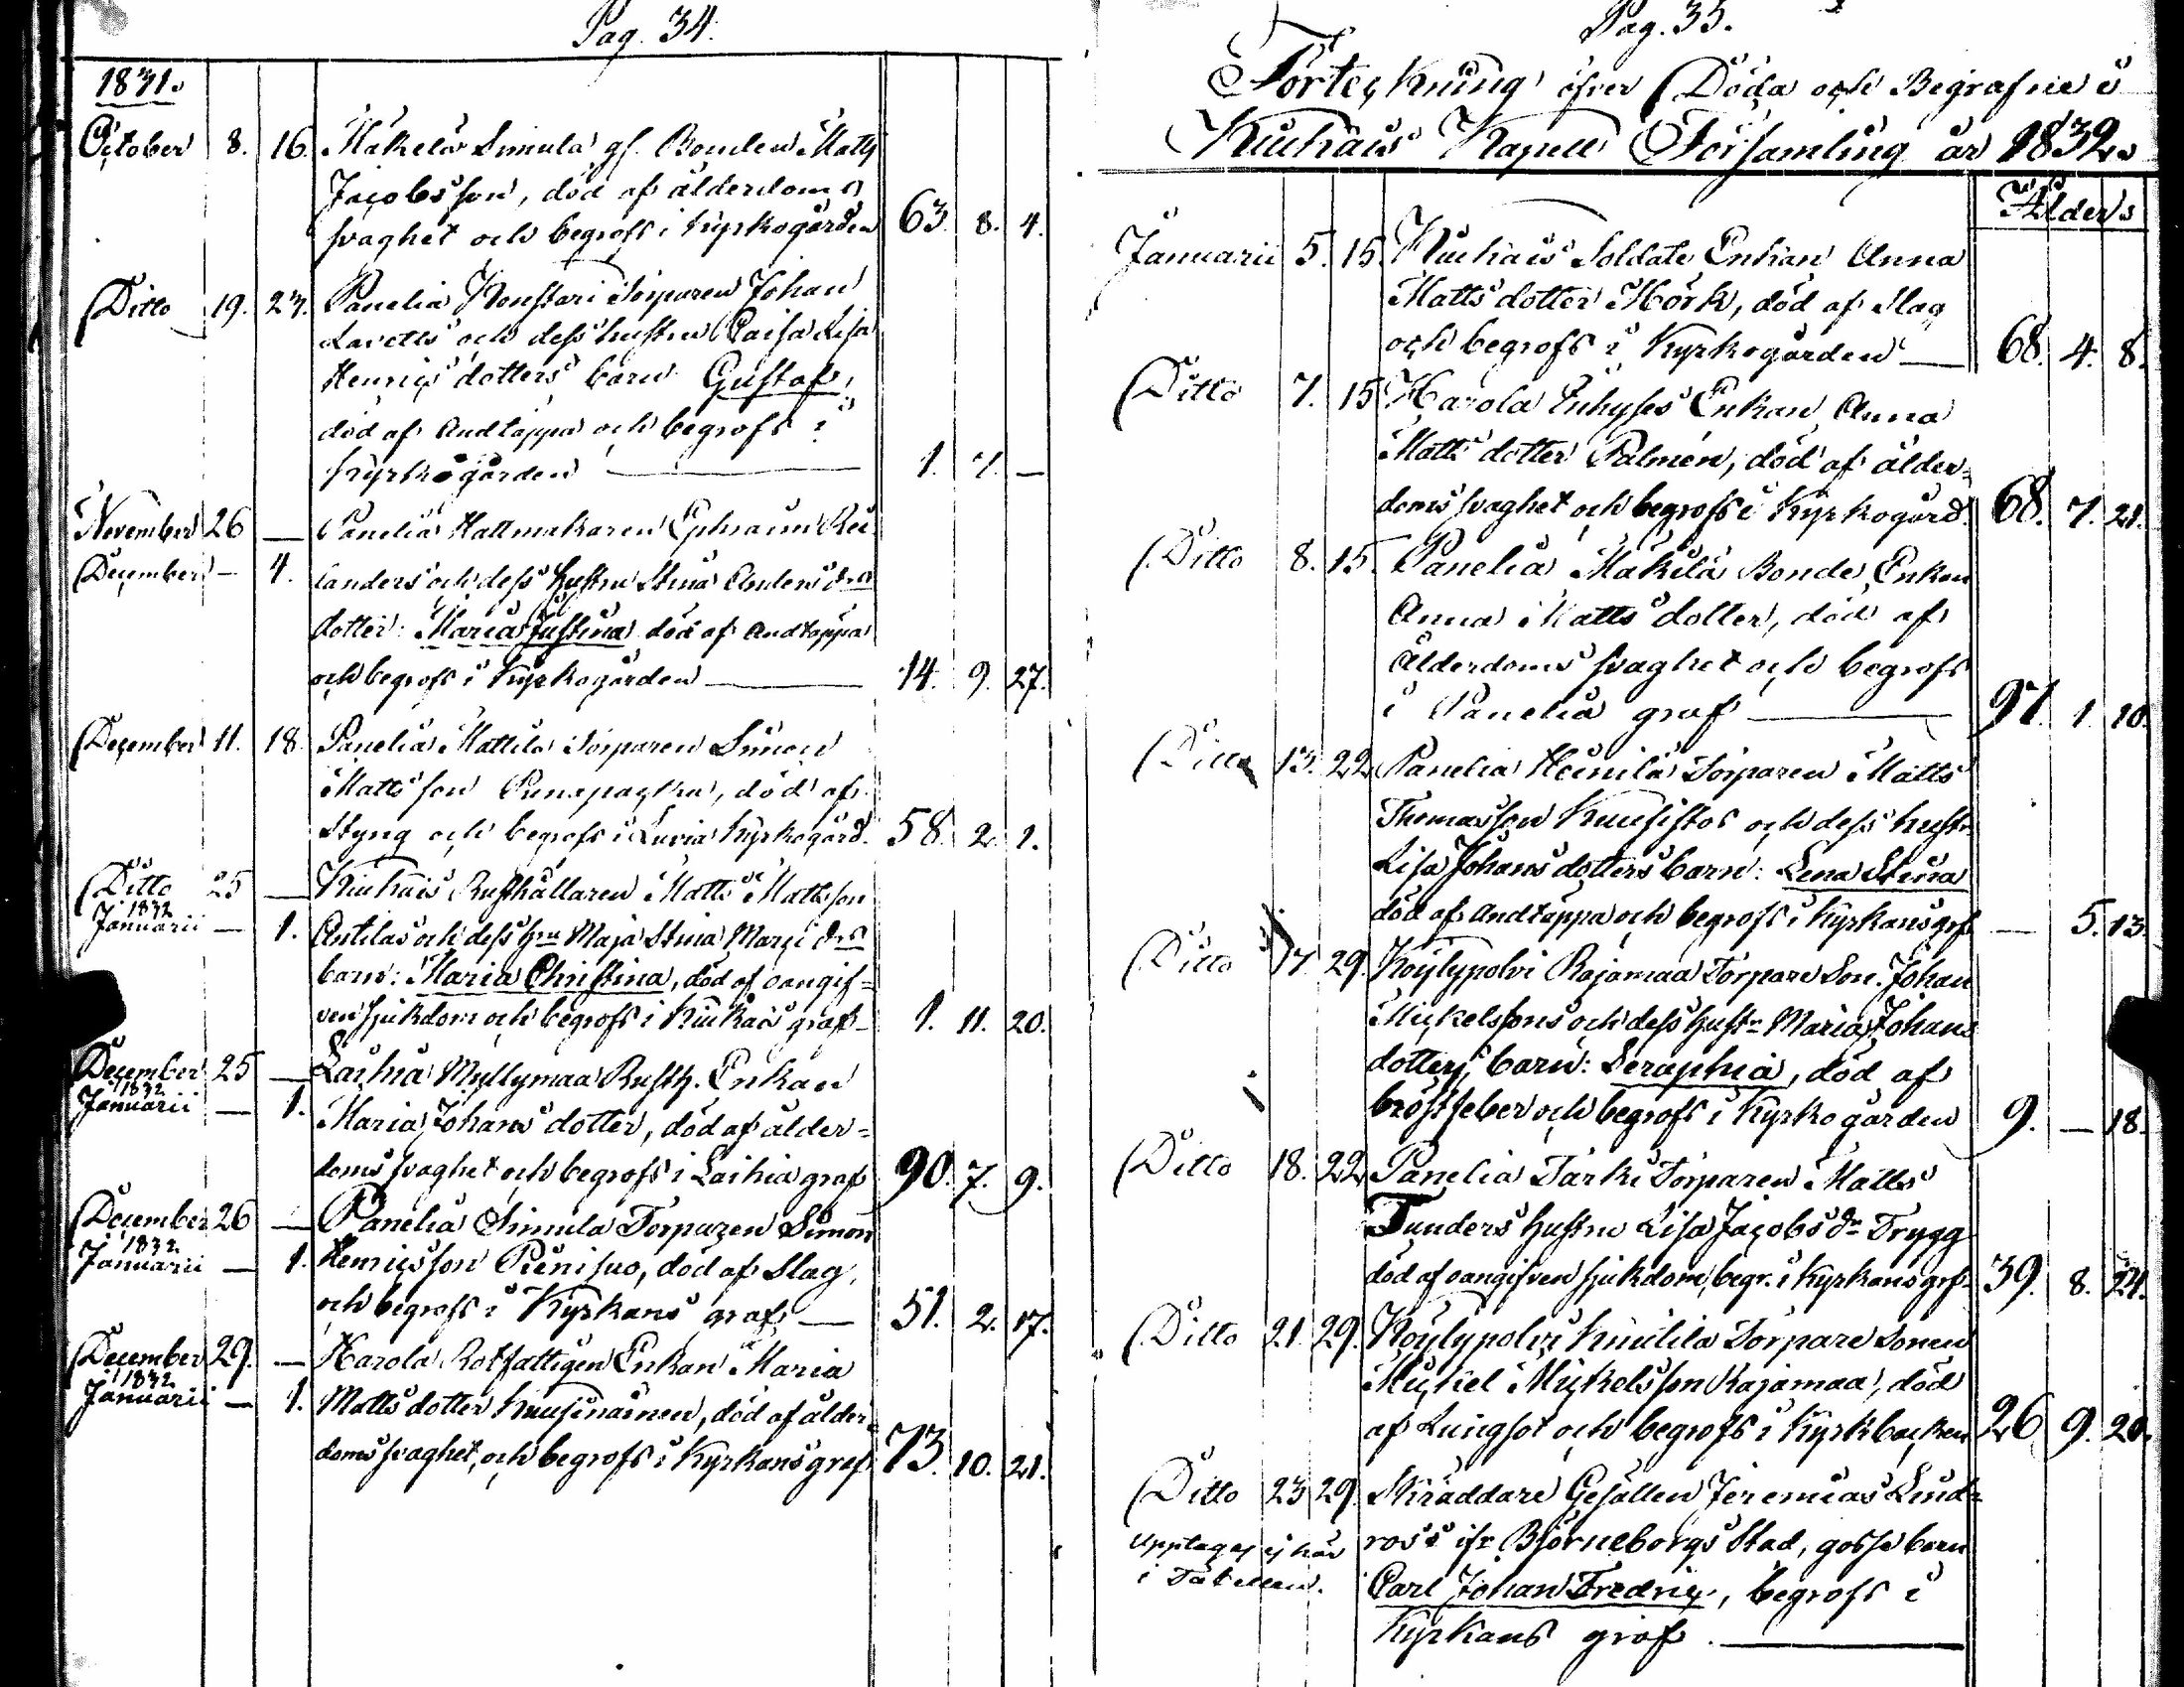 Pag. 34.
1831.
October 8. 16. Mäkelä Simula gl. Bonden Matts
Jacobsson, död af ålderdoms
svaghet och begrofs i Kyrkogården 63. 8. 4.
Ditto 19. 23. Panelia Konstari Torparen Johan
och dess hustru Caisa Lisa
Henrics dotters barn Gustaf,
död af Andtäppa och begrofs i
Kyrkogården — 1. 7. —
November 26 — Panelia Hattmakaren Ephraim Reu
December — 4. landers och dess hustru Stina Anders drs
dotter: Maria Justina död af Andtäppa
och begrofs i Kyrkogården — 14. 9. 27.
December 11. 18. Panelia Mattila Torparen Simon
Matts son, död af
Styng och begrofs i Luvia Kyrkogård. 58. 2. 1.
Ditto 25 — Kiukais Rusthållaren Matts Mattsson
1832
Januarii — 1. Antilas och dess hru Maja Stina Marci drs
barn: Maria Christina, död af oangif=
ven sjukdom och begrofs i Kiukais graf — 1. 11. 20.
December 25 — Laihia Myllymaa Rusth. Enkan
1832
Januarii — 1. Maria Johans dotter, död af ålder=
doms svaghet och begrofs i Laihia graf 90. 7. 9.
December 26 — Panelia Simula Torparen Simon
1832
Januarii — 1. Henricsson Pienisuo, död af Slag,
och begrofs i Kyrkans graf — 51. 2. 17.
December 29. — Harola Rotfattigen Enkan Maria
1832
Januarii — 1. Matts dotter Kuusinainen, död af ålder=
doms svaghet, och begrofs i Kyrkans graf 73. 10. 21.
Pag. 35.
Förteckning öfver Döda och Begrafne i
Kiukais Kapell Församling år 1832.
Ålder
Januarii 5. 15. Kiukais Soldats Enkan Anna
Matts dotter Mörk, död af Slag
och begrofs i Kyrkogården — 68. 4. 8.
Ditto 7. 15 Harola Inhyses Enkan Anna
Matts dotter Palmén, död af ålder=
doms svaghet och begrofs i Kyrkogård. 68. 7. 21.
Ditto 8. 15. Panelia Mäkilä Bonde Enkan
Anna Matts dotter, död af
Ålderdoms svaghet och begrofs
i Panelia graf — 97. 1. 10.
Ditto 13. 22 Panelia Heinilä Torparen Matts
Thomasson Kuusistos och dess hustr
Lisa Johans dotters barn: Lena Stina
död af Andtäppa och begrofs i Kyrkans grf — 5. 13.
Ditto 17. 29. Köylypolvi Rajamaa Torpare Son. Johan
Mickelssons och dess hustr Maria Johans
dotters barn: Seraphia, död af
bröstfeber och begrofs i Kyrkogården 9. — 18.
Ditto 18. 22 Panelia Tärki Torparen Matts
Tunders hustru Lisa Jacobs dr Trygg
död af oangifven sjukdom, begr. i Kyrkans grf. 39. 8. 24.
Ditto 21. 29. Köylypolvi Knutila Torpare Sonen
Mickel Mickelsson Rajamaa, död
af Lungsot och begrofs i Kyrkbacken 26 9. 20.
Ditto 23 29. Skräddare Gesällen Jeremias Lind=
Upptages ej här ross ifr. Björneborgs Stad, gosse barn
i Tabellen. Carl Johan Fredric, begrofs i
Kyrkans graf. —